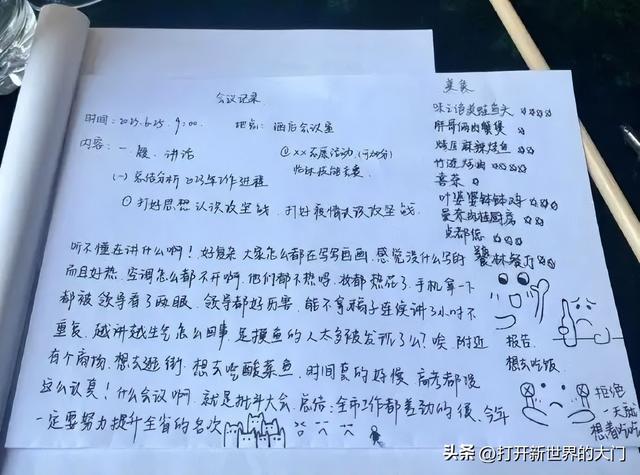 会议记录
时间：2025.6.25. 9:00. 地点：酒店会议室
内容：一、 讲话
@××志愿活动
(一) 总结分析2025年工作进程
① 打好思想认识攻坚战，打好疫情认识攻坚战.
听不懂在讲什么啊！好复杂 大家怎么都在写写画画，感觉没什么写的
而且好热，空调怎么都不开啊，他们都不热吗，妆都热花了，手机拿一下
都被领导看了两眼，领导都好厉害，能不拿稿子连续讲了小时不
重复，越讲越生气怎么回事，是摸鱼的人太多被发现了么？唉，附近
有个商场，想去逛街，想去吃酸菜鱼，时间真的好慢，高考都没
这么认真！什么会议啊，就是批斗大会，总结：全市工作都差劲的很，今年
一定要努力提升全省的名次
美食
胖哥俩肉蟹煲
烤匠麻辣烤鱼
竹迹烤肉 ☆☆☆☆
喜茶 ☆
叶婆婆钵钵鸡 ☆☆
点都德 ☆☆
饕林餐厅 ☆☆☆
报告，
想去吃饭，
拒绝
一天就
想着吃吃
头条 @打开新世界的大门